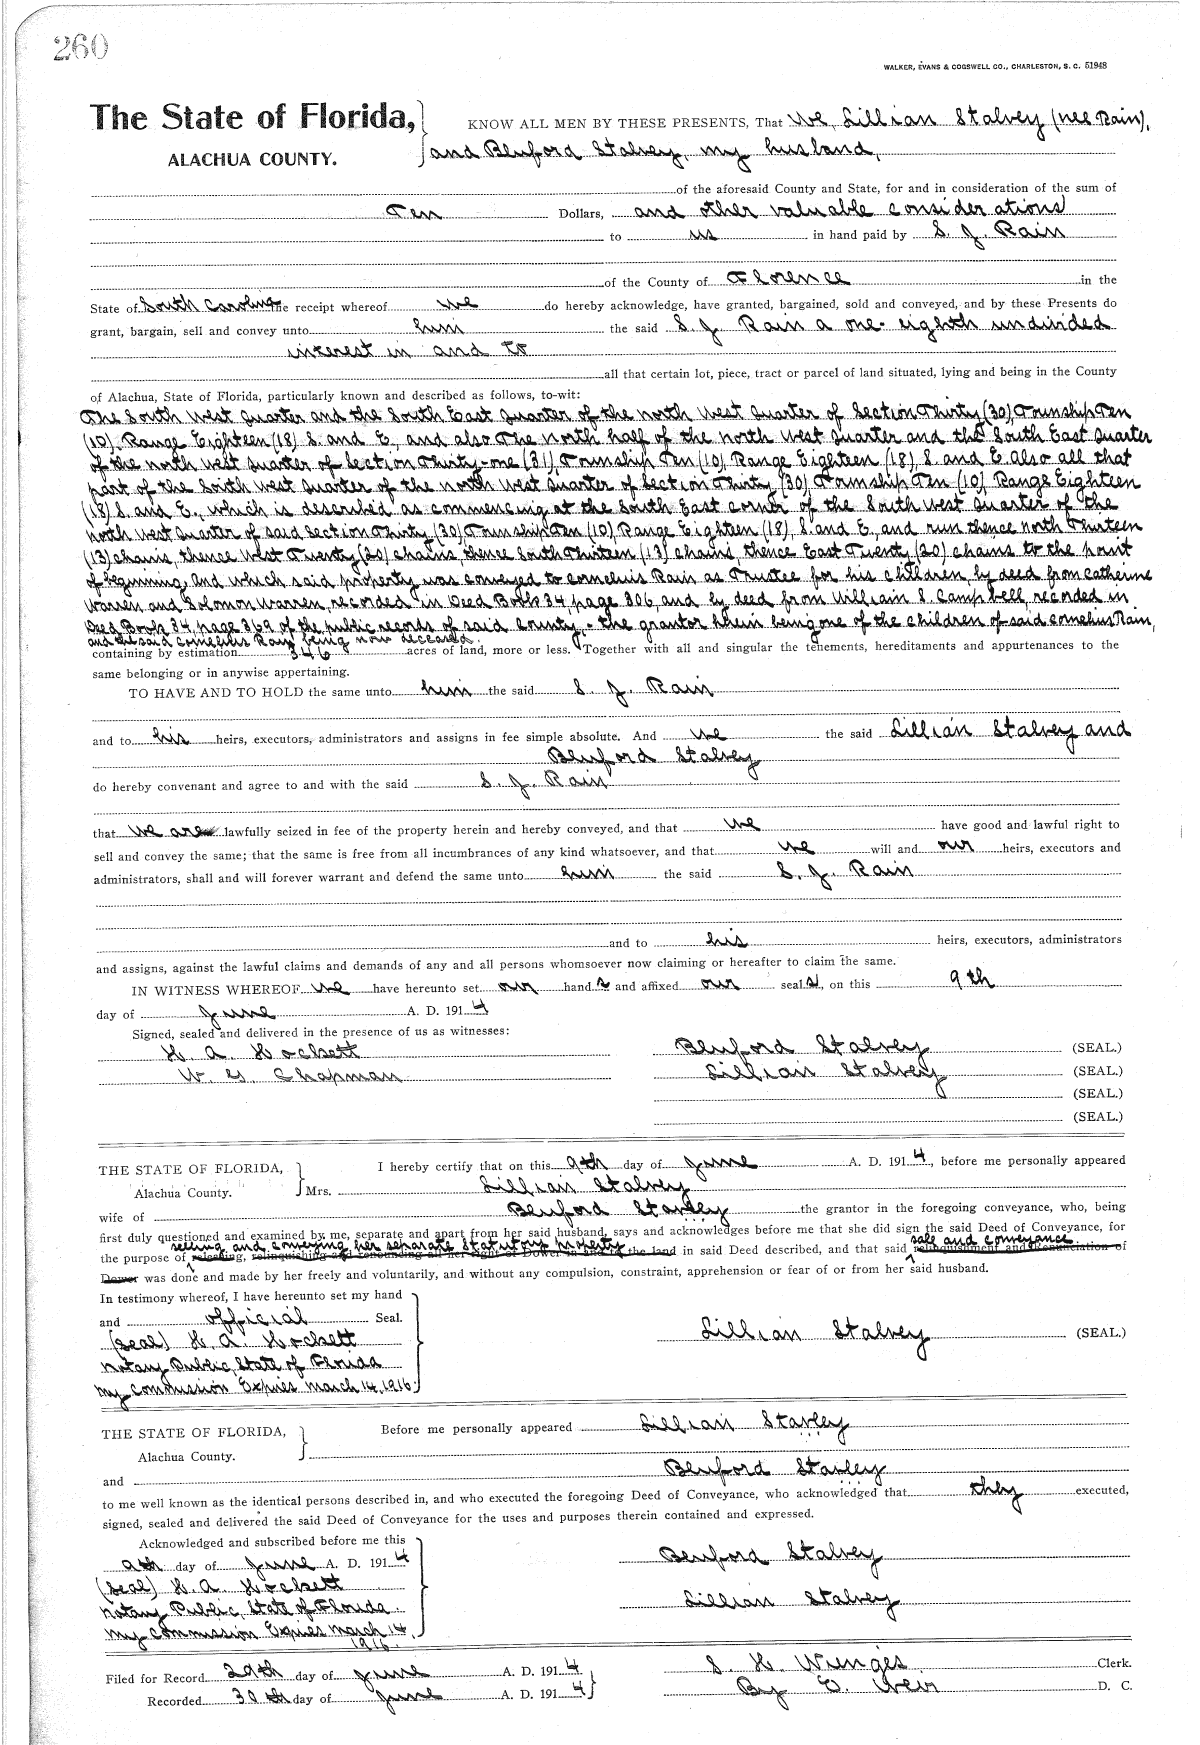 260
WALKER, EVANS & COGSWELL CO., CHARLESTON, S. C. 51948
The State of Florida, KNOW ALL MEN BY THESE PRESENTS, That We, Lillian Stalvey (nee Rain),
ALACHUA COUNTY. and Benford Stalvey, my husband,
of the aforesaid County and State, for and in consideration of the sum of
Ten Dollars, and other valuable considerations
to us in hand paid by S. J. Rain
of the County of Florence in the
State of South Carolina the receipt whereof we do hereby acknowledge, have granted, bargained, sold and conveyed, and by these Presents do
grant, bargain, sell and convey unto him the said S. J. Rain a one-eighth undivided
interest in and to
all that certain lot, piece, tract or parcel of land situated, lying and being in the County
of Alachua, State of Florida, particularly known and described as follows, to-wit:
The South West Quarter and the South East Quarter of the north West Quarter of Section Thirty (30) Township Ten
(10), Range Eighteen (18) S. and E., and also The north half of the north West Quarter and the South East Quarter
of the north West Quarter of Section Thirty-one (31), Township Ten (10), Range Eighteen (18), S. and E. Also all that
part of the South West Quarter of the north West Quarter of Section Thirty (30), Township Ten (10) Range Eighteen
(18) S. and E., which is described as commencing at the South East corner of the South West Quarter of the
north West Quarter of said Section Thirty (30) Township Ten (10) Range Eighteen (18), S. and E., and run thence north Thirteen
(13) chains, thence West Twenty (20) chains, thence South Thirteen (13) chains, thence East Twenty (20) chains to the point
of beginning, and which said property was conveyed to Cornelius Rain as Trustee for his children by deed from Catherine
Warren and Solomon Warren, recorded in Deed Book 34, page 306, and by deed from William S. Campbell, recorded in
Deed Book 34 page 369 of the public records of said County, - the grantor herein being one of the children of said Cornelius Rain,
and the said Cornelius Rain being now deceased.
containing by estimation 346 acres of land, more or less. Together with all and singular the tenements, hereditaments and appurtenances to the
same belonging or in anywise appertaining.
TO HAVE AND TO HOLD the same unto him the said S. J. Rain
and to his heirs, executors, administrators and assigns in fee simple absolute. And we the said Lillian Stalvey and
Benford Stalvey
do hereby convenant and agree to and with the said S. J. Rain
that we are lawfully seized in fee of the property herein and hereby conveyed, and that we have good and lawful right to
sell and convey the same; that the same is free from all incumbrances of any kind whatsoever, and that we will and our heirs, executors and
administrators, shall and will forever warrant and defend the same unto him the said S. J. Rain
and to his heirs, executors, administrators
and assigns, against the lawful claims and demands of any and all persons whomsoever now claiming or hereafter to claim the same.
IN WITNESS WHEREOF we have hereunto set our hand s and affixed our seal s, on this 9th
day of June A. D. 1914
Signed, sealed and delivered in the presence of us as witnesses:
H. A. Hockett Benford Stalvey (SEAL.)
W. G. Chapman Lillian Stalvey (SEAL.)
(SEAL.)
(SEAL.)
THE STATE OF FLORIDA, I hereby certify that on this 9th day of June A. D. 1914, before me personally appeared
Alachua County. Mrs. Lillian Stalvey
wife of Benford Stavley the grantor in the foregoing conveyance, who, being
first duly questioned and examined by me, separate and apart from her said husband, says and acknowledges before me that she did sign the said Deed of Conveyance, for
selling and conveying her separate statutory property sale and conveyance
the purpose of in said Deed described, and that said relinquishment and renunciation of
Dower was done and made by her freely and voluntarily, and without any compulsion, constraint, apprehension or fear of or from her said husband.
In testimony whereof, I have hereunto set my hand
and official Seal.
(seal) H. A. Hockett Lillian Stalvey (SEAL.)
Notary Public, State of Florida
My Commission Expires March 14, 1916.
THE STATE OF FLORIDA, Before me personally appeared Lillian Stavley
Alachua County.
and Benford Stavley
to me well known as the identical persons described in, and who executed the foregoing Deed of Conveyance, who acknowledged that they executed,
signed, sealed and delivered the said Deed of Conveyance for the uses and purposes therein contained and expressed.
Acknowledged and subscribed before me this
9th day of June A. D. 1914 Benford Stalvey
(seal) H. A. Hockett
Notary Public, State of Florida. Lillian Stalvey
My Commission Expires March 14,
1916.
Filed for Record 29th day of June A. D. 1914 S. H. Wienges, Clerk.
Recorded 30th day of June A. D. 1914 By E. Weir D. C.